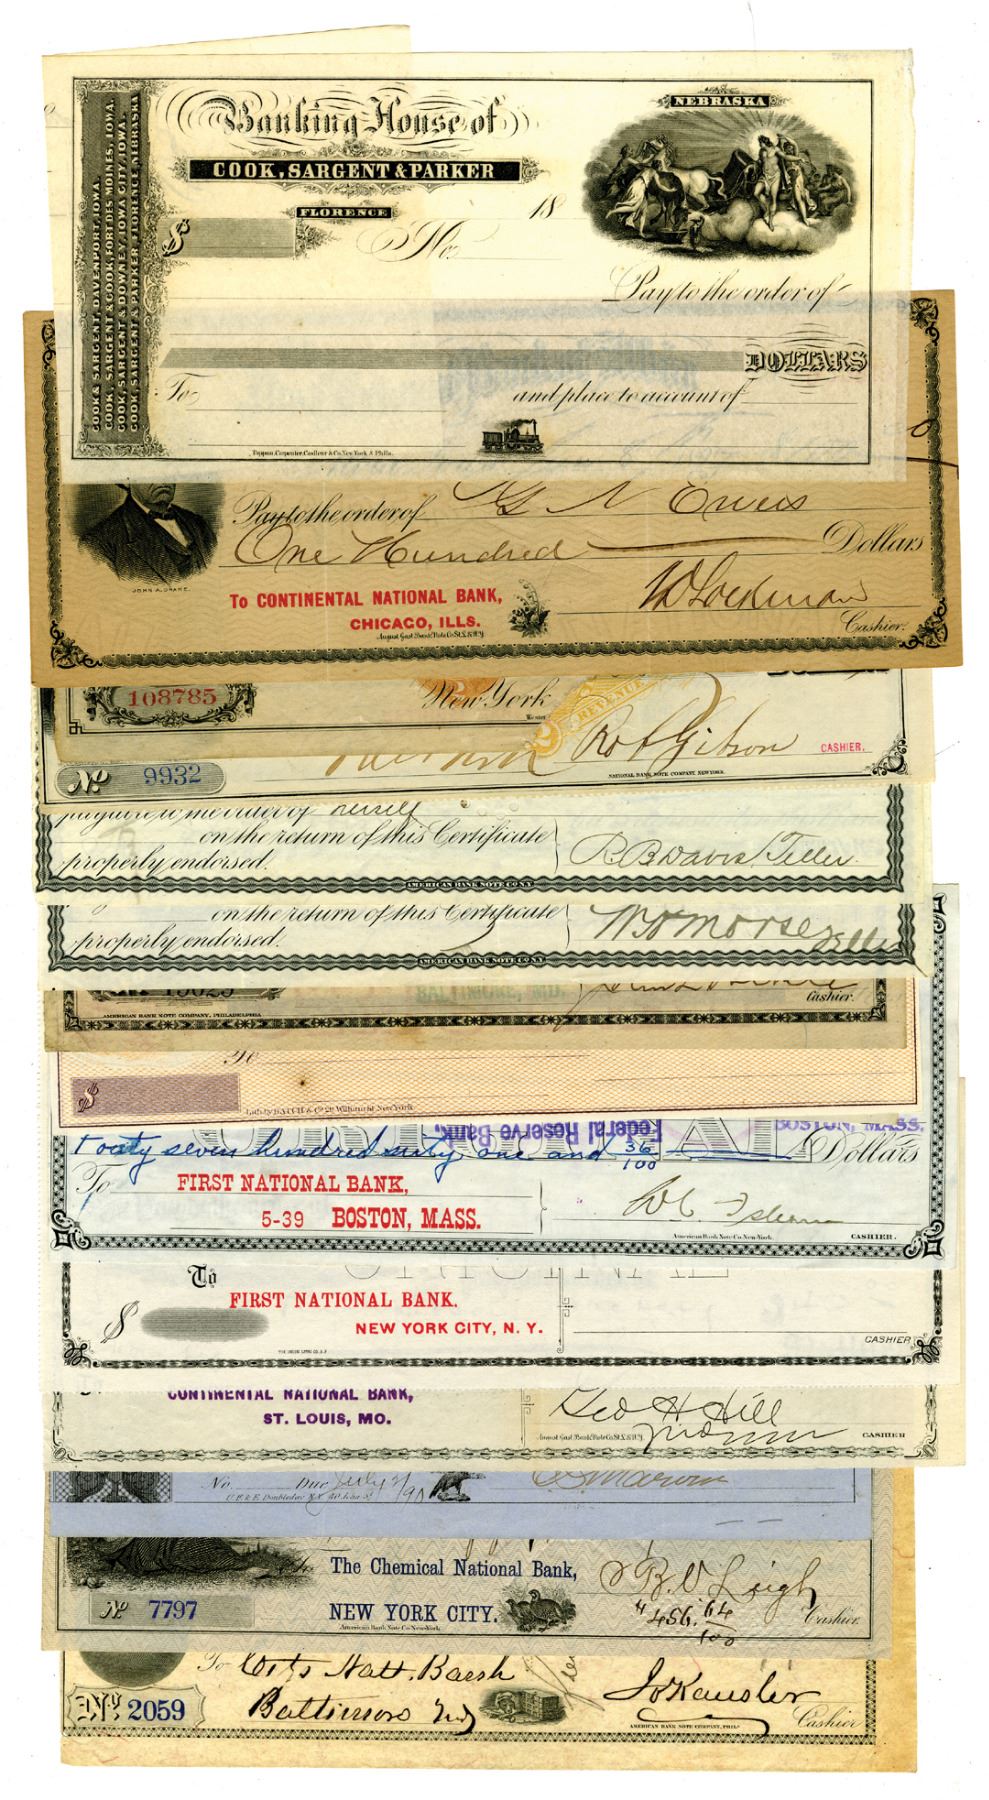 NEBRASKA
Banking House of
COOK, SARGENT & PARKER
FLORENCE
18
$
No.
Pay to the order of
DOLLARS
To
and place to account of
Toppan, Carpenter, Casilear & Co. New York & Phila.
COOK & SARGENT, DAVENPORT, IOWA.
COOK, SARGENT & COOK, FORT DES MOINES, IOWA.
COOK, SARGENT & DOWNEY, IOWA CITY, IOWA.
COOK, SARGENT & PARKER, FLORENCE NEBRASKA
Pay to the order of G N Ewers
One Hundred Dollars
JOHN A. DRAKE.
To CONTINENTAL NATIONAL BANK,
CHICAGO, ILLS.
August Gast Bank Note Co. St. L. & N.Y.
Cashier.
108785
New York
REVENUE
Robt Gibson
CASHIER.
No 9932
NATIONAL BANK NOTE COMPANY NEW YORK
payable to the order of herself
on the return of this Certificate
properly endorsed.
R B Davis Teller
AMERICAN BANK NOTE CO N.Y.
on the return of this Certificate
properly endorsed.
W H Morse Teller
AMERICAN BANK NOTE CO N.Y.
BALTIMORE, MD.
Cashier.
AMERICAN BANK NOTE COMPANY, PHILADELPHIA
To
$
Lith. by HATCH & Co. 29 William St New York
Federal Reserve Bank
BOSTON, MASS.
Forty seven hundred sixty one and 36/100 Dollars
To FIRST NATIONAL BANK,
5-39 BOSTON, MASS.
American Bank Note Co. New York.
CASHIER.
ORIGINAL
To
FIRST NATIONAL BANK.
$
NEW YORK CITY, N. Y.
CASHIER
CONTINENTAL NATIONAL BANK,
ST. LOUIS, MO.
Geo H Hill
August Gast Bank Note Co. St. L. & N.Y.
CASHIER
No. Due July 21/90
The Chemical National Bank,
R. V. Leigh
No 7797
NEW YORK CITY.
$456.64/100
Cashier
American Bank Note Co. New York
To Citz Natl. Bank
No 2059
Baltimore Md
Jo Kausler
AMERICAN BANK NOTE COMPANY, PHILA.
Cashier